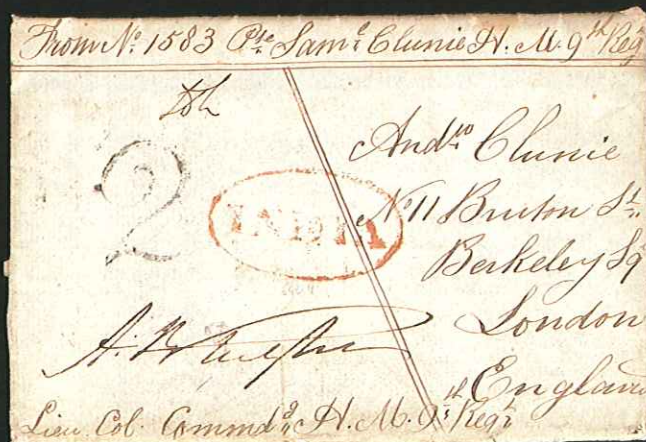 From No. 1583 Pte. Saml. Clunie H. M. 9th Regt
2
INDIA
Andw. Clunie
No 11 Bruton St.
Berkeley Sq
London
England
Lieu Col. Commdg. H. M. 9th Regt